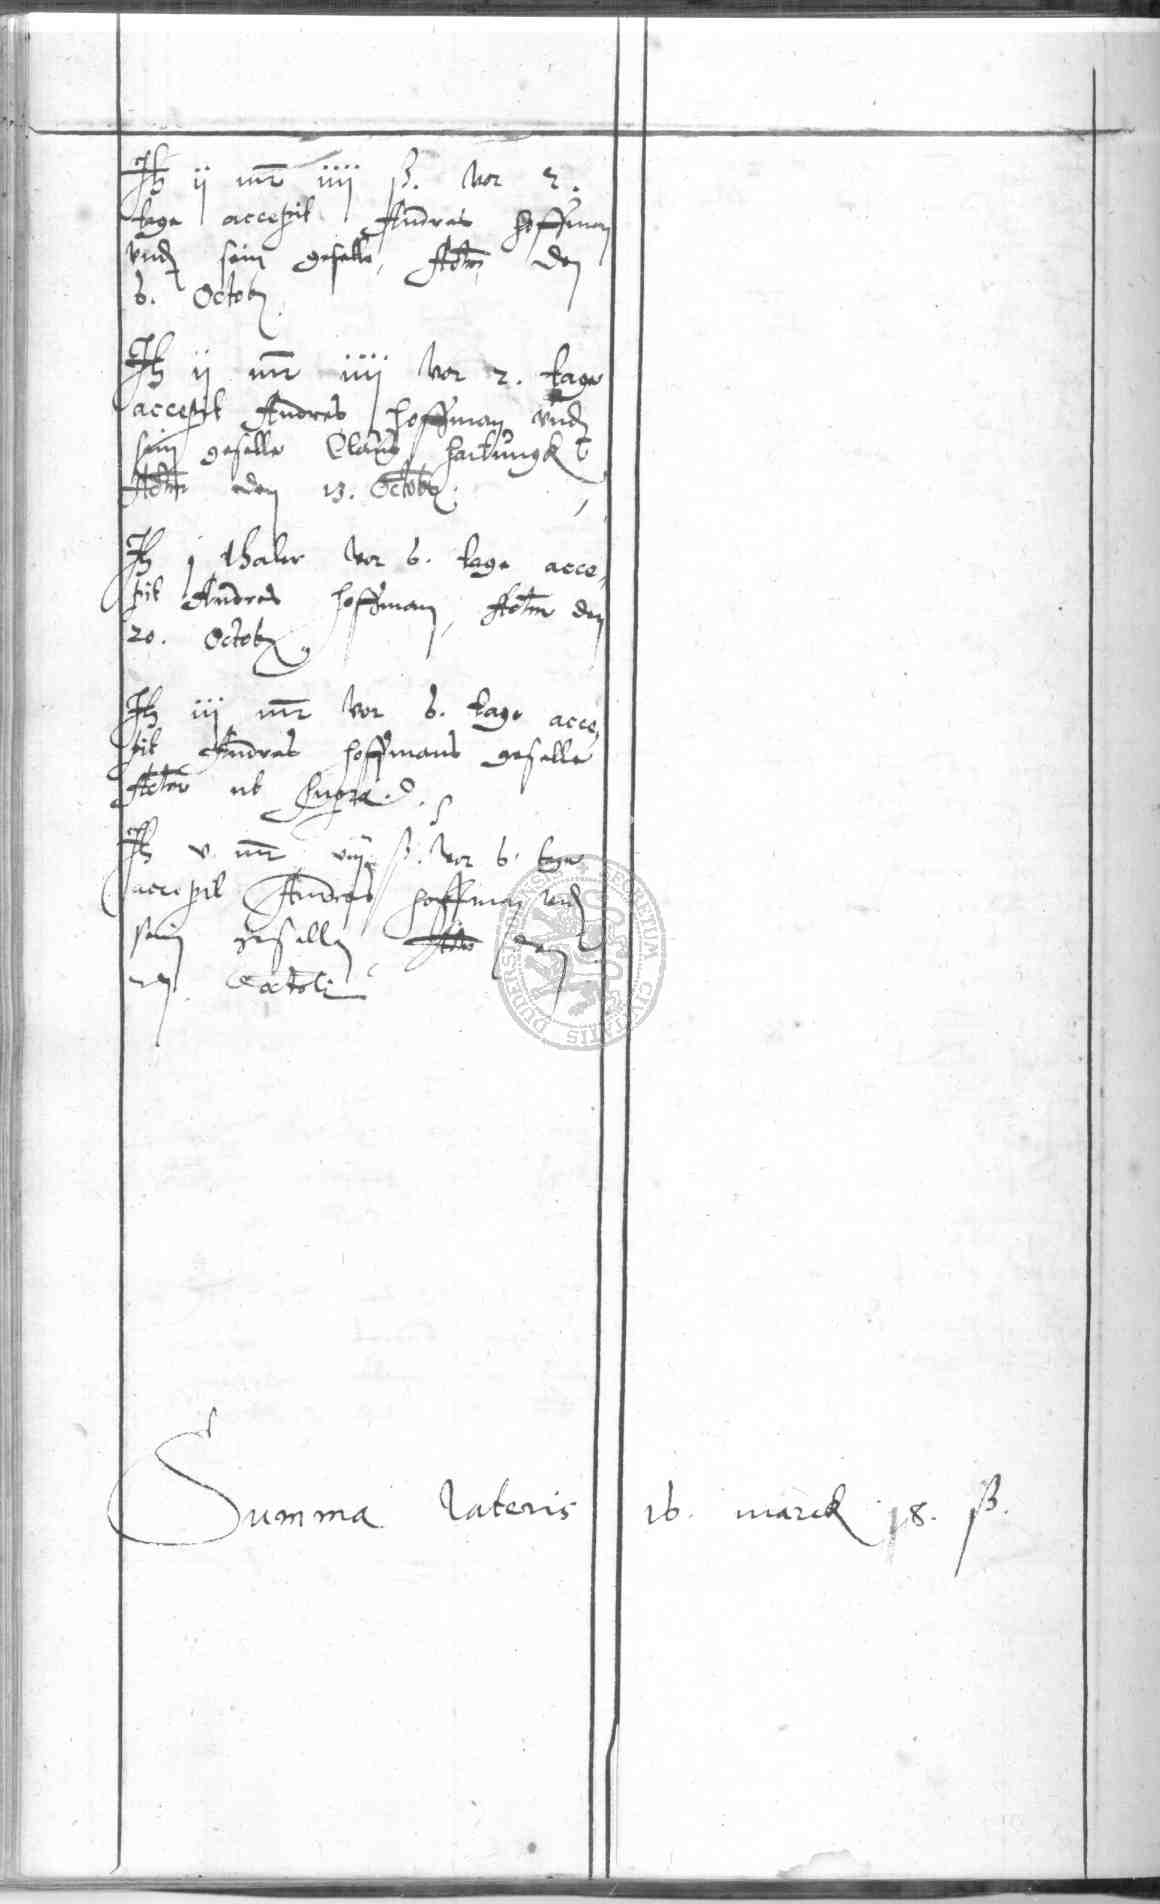 It ij mr iiij ß. vor 2.
tage accepit Andres Hoffman
vnd sein geselle, Actm den
6. Octob
It ij mr iiij vor 2. tage
accepit Andres Hoffman vnd
sein geselle Claus Hartungk
Actm den 13. Octob
It j thaler vor 6. tage acce
pit Andres Hoffman, Actm den
20. Octob
It iij mr vor 6. tage acce
pit Andres Hoffmans geselle
Actm ut supra.
It v mr viij ß. vor 6. tage
accepit Andres Hoffman vnd
sein gesellen, Actm den
27. Octob
SECRETUM CIVITATIS DUDERSTADENSIS
Summa lateris 16. marck 18. ß.